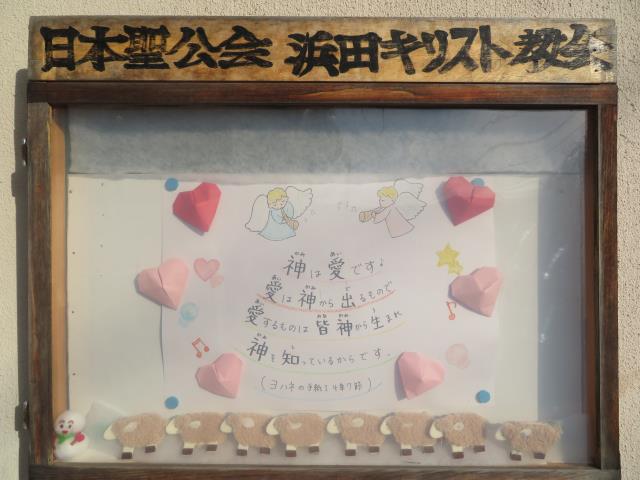 日本聖公会 浜田キリスト教会
神は愛です♪
愛は神から出るもので
愛するものは皆神から生まれ
神を知っているからです.
(ヨハネの手紙Ⅰ4章7節)